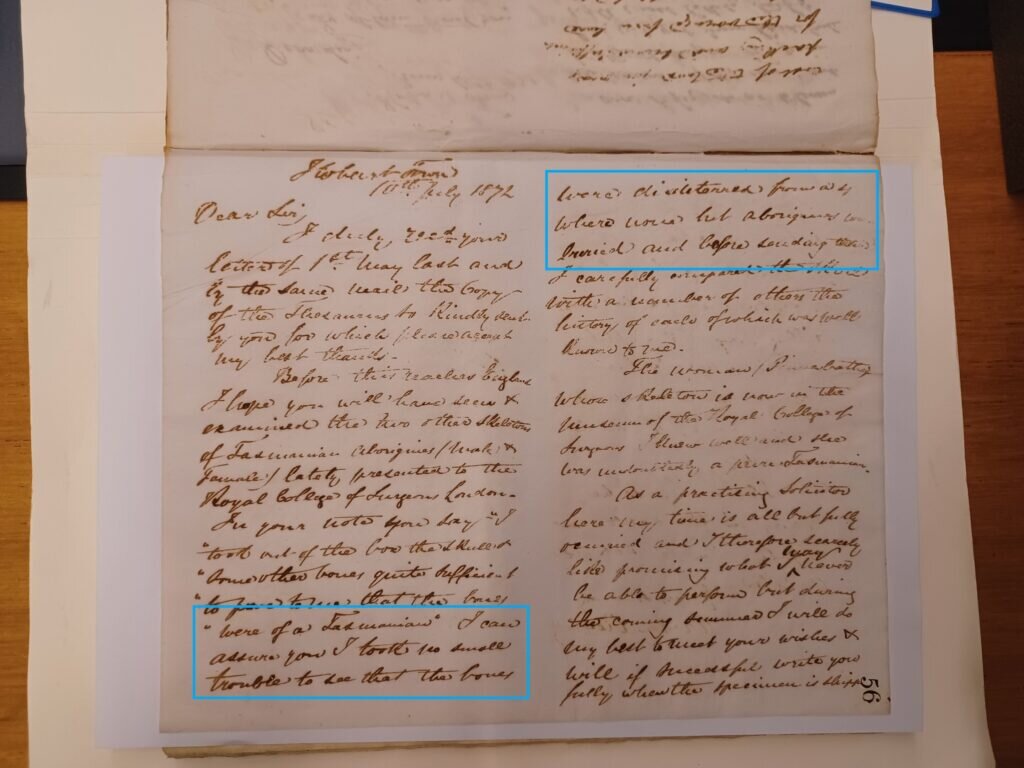 Hobart Town
10th July 1872
Dear Sir,
I duly recd your
letter of 1st May last and
by the same mail the Copy
of the Thesaurus so Kindly sent
by you for which please accept
my best thanks.
Before this reaches England
I hope you will have seen &
examined the two other Skeletons
of Tasmanian Aborigines (Male &
Female) lately presented to the
Royal College of Surgeons London.
In your note you say "I
"took out of the box the skull &
"some other bones quite sufficient
"to prove to me that the bones
"were of a Tasmanian" I can
assure you I took no small
trouble to see that the bones
were disinterred from a
where none but aborigines
buried and before sending them
I carefully compared the skull
with a number of others the
history of each of which was well
Known to me.
The woman
whose skeleton is now in the
museum of the Royal College of
Surgeons I knew well and she
was undoubtedly a pure Tasmanian.
As a practising Solicitor
here my time is all but fully
occupied and I therefore scarcely
like promising what I may never
be able to perform but during
the coming summer I will do
my best to meet your wishes &
will if successful write you
fully when the specimen is
56
cost of
packing and
for the